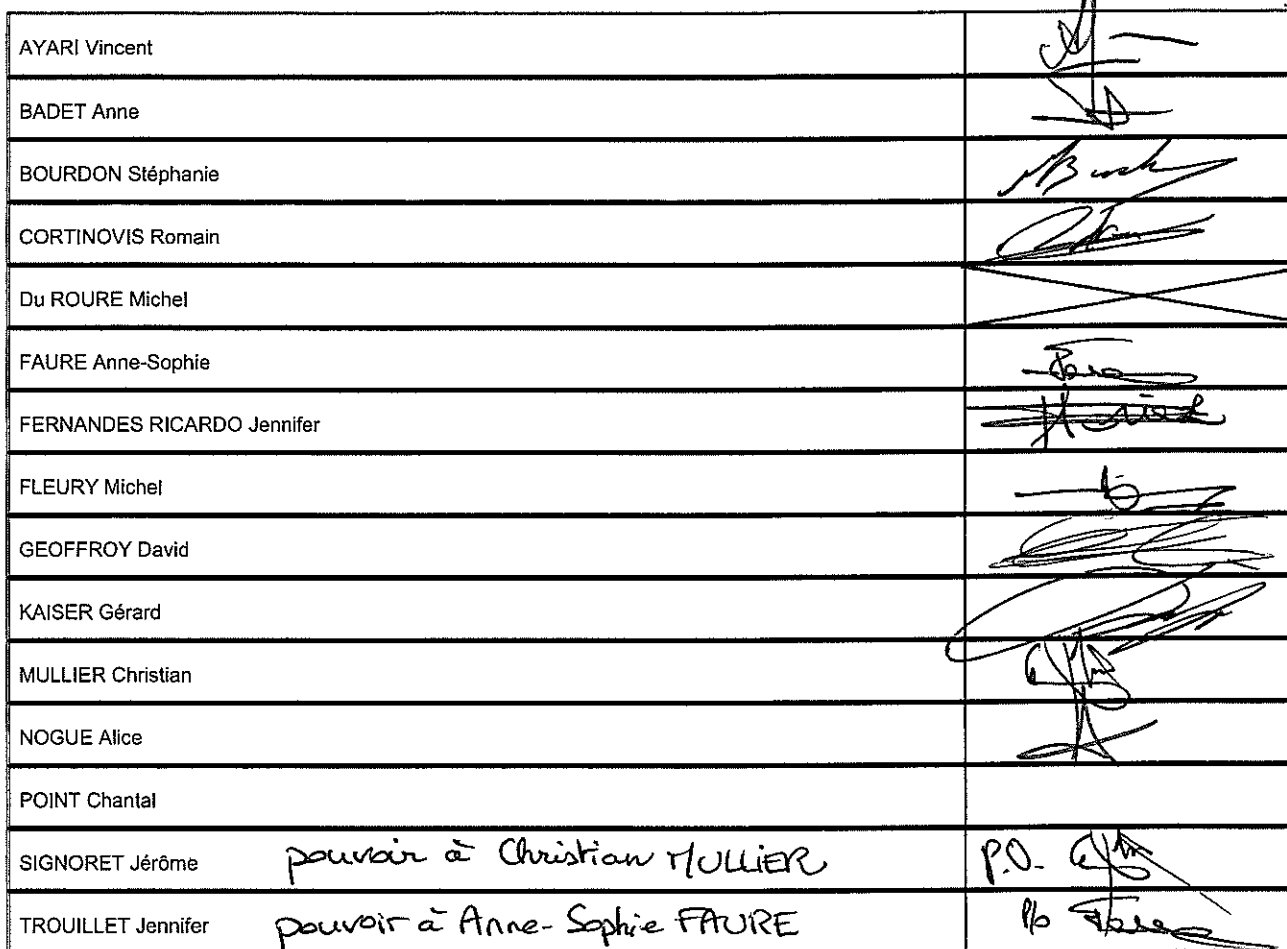 AYARI Vincent
BADET Anne
BOURDON Stéphanie
CORTINOVIS Romain
Du ROURE Michel
FAURE Anne-Sophie
FERNANDES RICARDO Jennifer
FLEURY Michel
GEOFFROY David
KAISER Gérard
MULLIER Christian
NOGUE Alice
POINT Chantal
SIGNORET Jérôme pouvoir à Christian MULLIER P.O.
TROUILLET Jennifer pouvoir à Anne-Sophie FAURE P/o